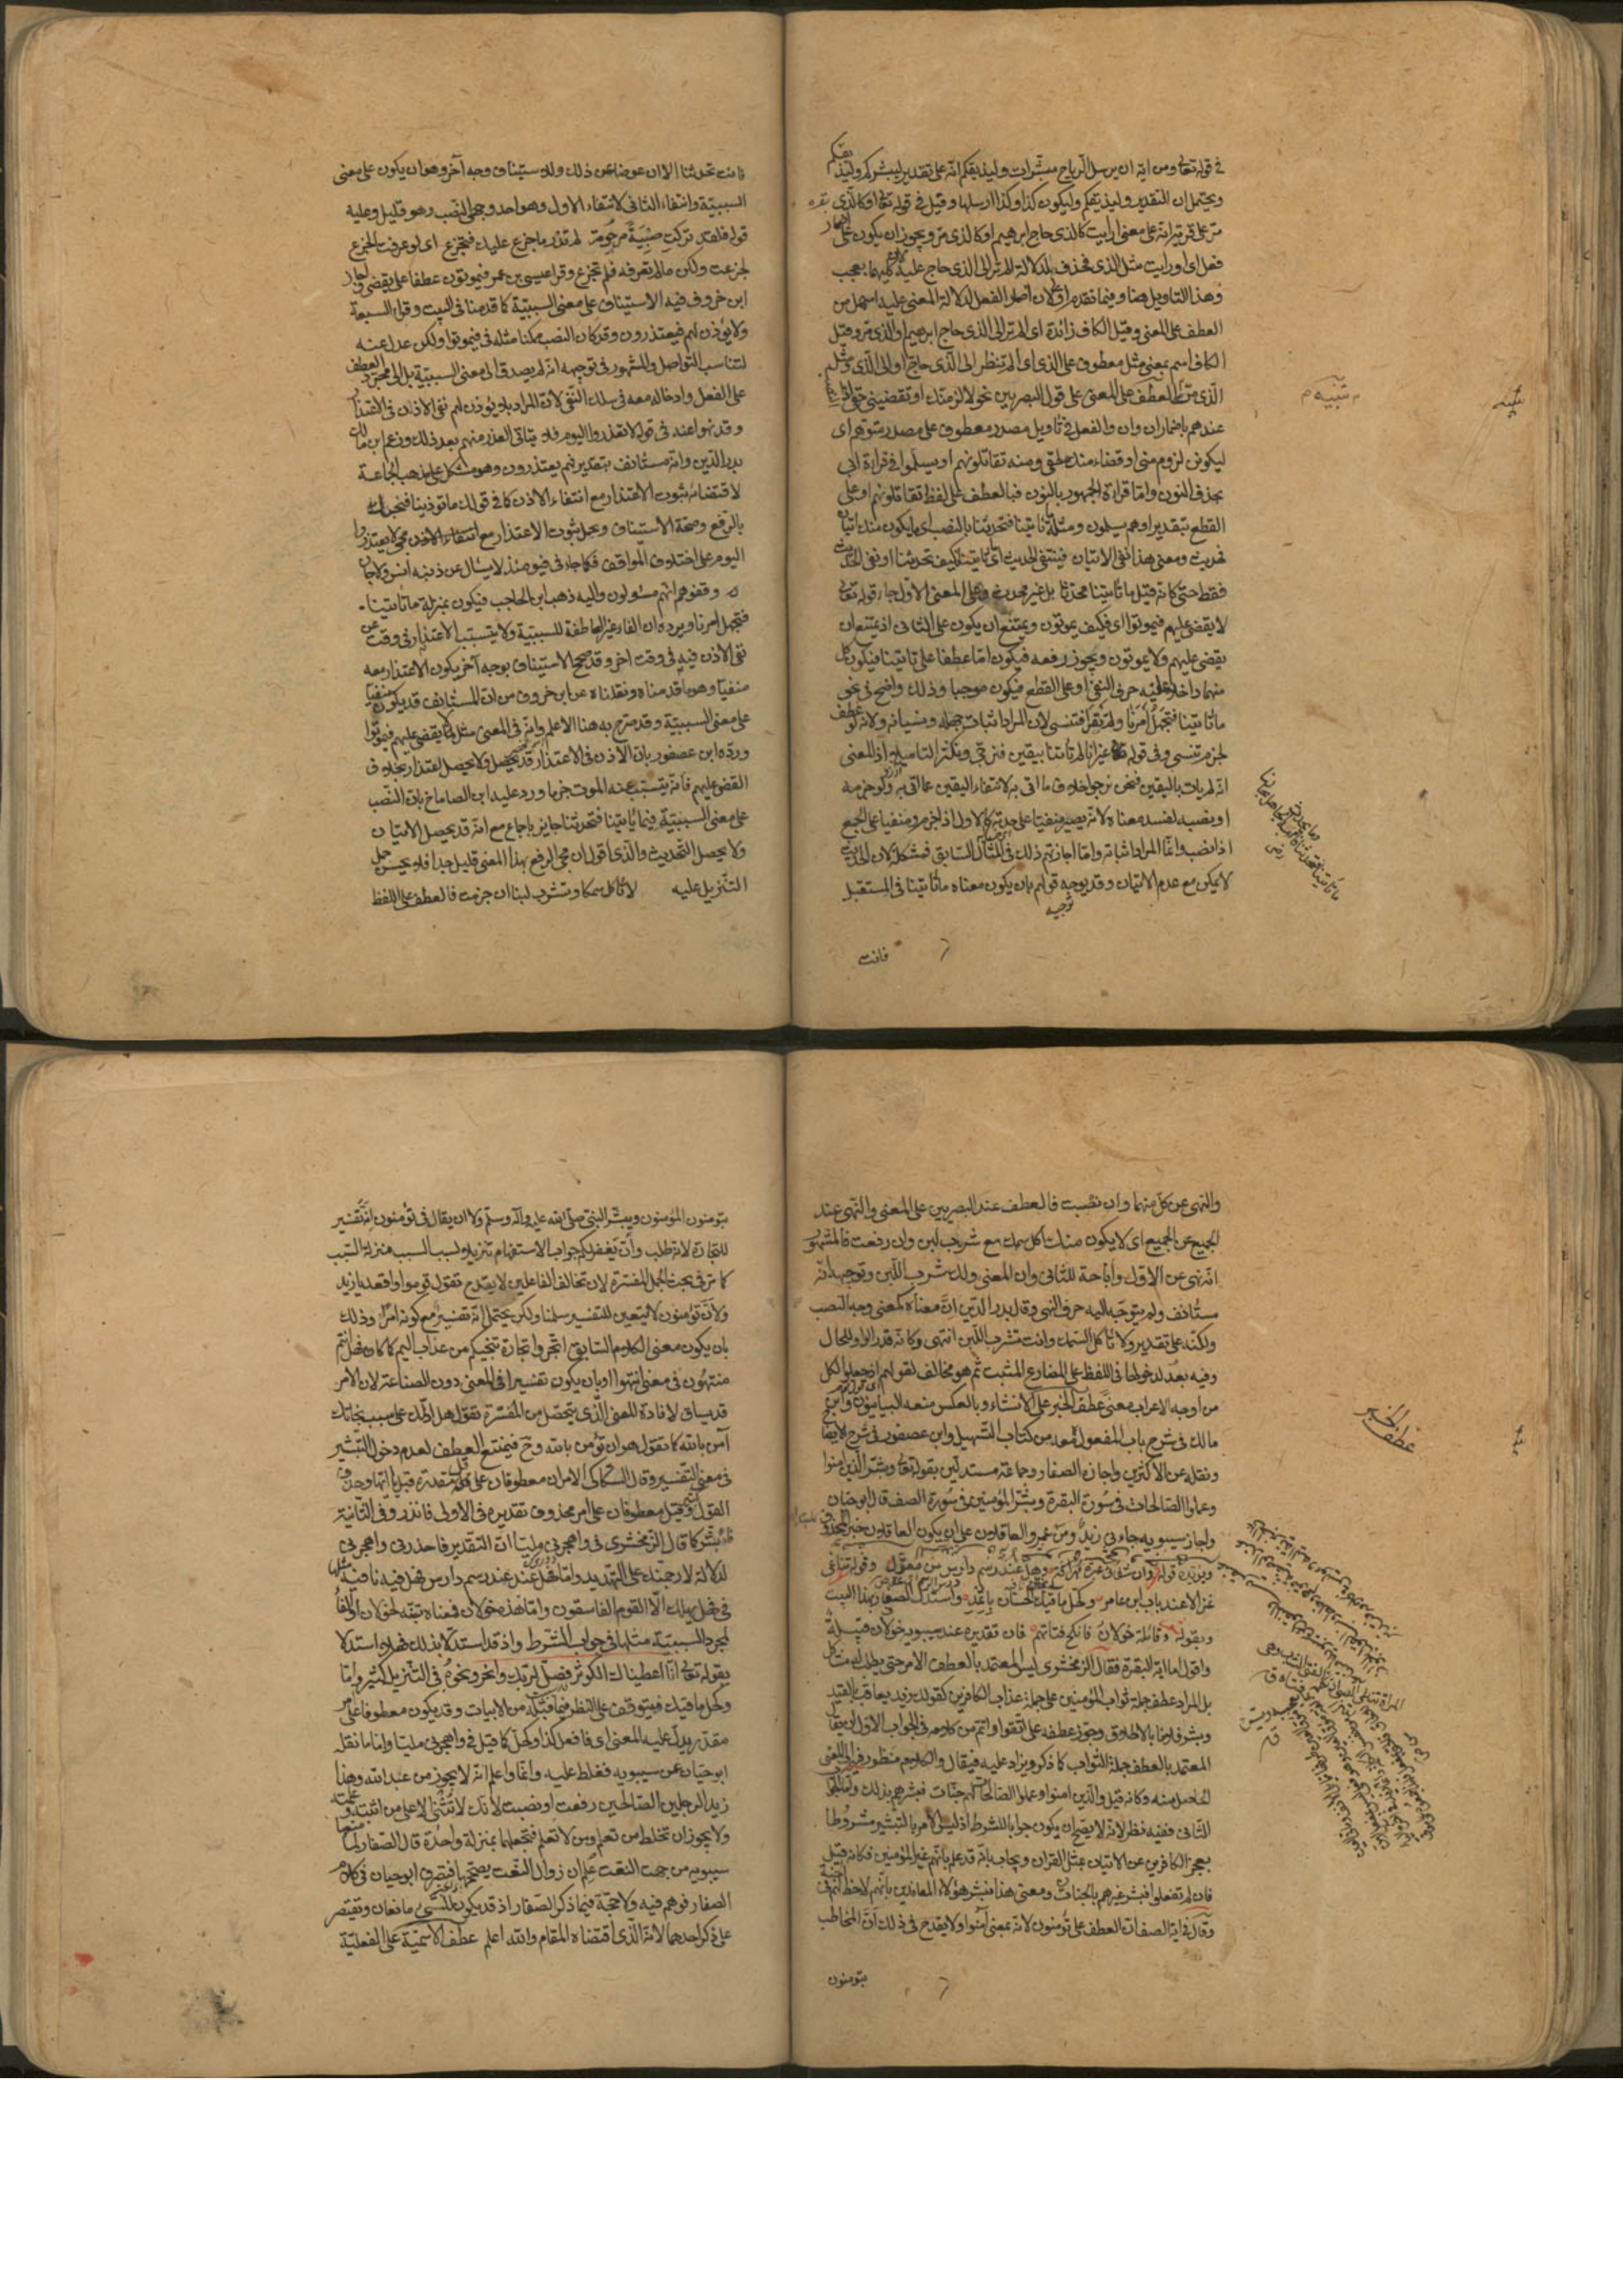 في قوله تعالى ومن آياته ان يرسل الرياح مبشرات وليذيقكم انه على تقدير ليبشركم وليذيقكم
ويحتمل ان التقدير وليذيقكم وليكون كذا وكذا ارسلها وقيل في قوله تعالى او كالذي
مر على قرية انه على معنى ارايت كالذي حاج ابرهيم او كالذي مر ويجوز ان يكون على اضمار
فعل اى او رايت مثل الذي فحذف لدلالة الم تر الى الذي حاج عليه لان كليهما تعجب
وهذا التاويل هنا وفيما تقدم اولى لان اضمار الفعل لدلالة المعنى عليه اسهل من
العطف على المعنى وقيل الكاف زائدة اى الم تر الى الذي حاج ابرهيم او الذي مر وقيل
الكاف اسم بمعنى مثل معطوف على الذي اى الم تنظر الى الذي حاج او الى مثل
الذي مر العطف على المعنى على قول البصريين نحو لالزمنك او تقضيني حقي اذ النصب
عندهم باضمار ان وان والفعل في تاويل مصدر معطوف على مصدر متوهم اى
ليكونن لزوم مني او قضاء منك لحقي ومنه تقاتلونهم او يسلموا في قراءة ابي
بحذف النون واما قراءة الجمهور بالنون فبالعطف على لفظ تقاتلونهم او على
القطع بتقدير او هم يسلمون ومثله ما تاتينا فتحدثنا بالنصب اى ما يكون منك اتيان
فحديث ومعنى هذا نفي الاتيان فينتفي الحديث اى ما تاتينا فكيف تحدثنا او نفي الحديث
فقط حتى كانه قيل ما تاتينا محدثا بل غير محدث وعلى المعنى الاول جاء قوله تعالى
لا يقضى عليهم فيموتوا اى فكيف يموتون ويمتنع ان يكون على الثاني اذ يمتنع ان
يقضى عليهم ولا يموتون ويجوز رفعه فيكون اما عطفا على تاتينا فيكون كل
منهما داخلا عليه حرف النفي او على القطع فيكون موجبا وذلك واضح في نحو
ما تاتينا فتجهل امرنا ولم تقرا فتنسى لان المراد اثبات جهله ونسيانه ولانه لو عطف
لجزم تنسى وفي قوله غير انا لم تاتنا بيقين فنرجي ونكثر التاميلا اذ المعنى
انه لم يات باليقين فنحن نرجو خلاف ما اتى به لانتفاء اليقين عما اتى به ولو جزمه
او نصبه لفسد معناه لانه يصير منفيا على حدته كالاول اذا جزم ومنفيا على الجمع
اذا نصب وانما المراد اثباته واما اجازتهم ذلك في المثال السابق فمشكلة لان الحديث
لا يمكن مع عدم الاتيان وقد يوجه قولهم بان يكون معناه ما تاتينا في المستقبل
توجيه
فانت
تنبيه
فانت تحدثنا الان عوضا عن ذلك وللاستيناف وجه آخر وهو ان يكون على معنى
السببية وانتفاء الثاني لانتفاء الاول وهو احد وجهي النصب وهو قليل وعليه
قوله فلقد تركت صبية مرحومة لم تدر ما جزع عليك فتجزع اى لو عرفت الجزع
لجزعت ولكن ما لم تعرفه فلم تجزع وقرا عيسى بن عمر فيموتون عطفا على يقضى واجاز
ابن خروف فيه الاستيناف على معنى السببية كما قدمنا في البيت وقرا السبعة
ولا يؤذن لهم فيعتذرون وقد كان النصب ممكنا مثله في فيموتوا ولكن عدل عنه
لتناسب الفواصل والمشهور في توجيهه انه لم يقصد الى معنى السببية بل الى مجرد العطف
على الفعل وادخاله معه في سلك النفي لان المراد بلا يؤذن لهم نفي الاذن في الاعتذار
وقد نهوا عنه في قوله لا تعتذروا اليوم فلا يتاتى العذر منهم بعد ذلك وزعم ابن مالك
بدر الدين وانه مستأنف بتقدير فهم يعتذرون وهو مشكل على مذهب الجماعة
لاقتضائه ثبوت الاعتذار مع انتفاء الاذن كما في قولك ما توذينا فنحبك
بالرفع وصحة الاستيناف ويحمل ثبوت الاعتذار مع انتفاء الاذن لا يعتذروا
اليوم على اختلاف المواقف فكما جاء في فيومئذ لا يسئل عن ذنبه انس ولا جان
وقفوهم انهم مسئولون واليه ذهب ابن الحاجب فيكون بمنزلة ما تاتينا
فتجهل امرنا ويرده ان الفاء غير العاطفة للسببية ولا يتسبب الاعتذار في وقت عن
نفي الاذن فيه في وقت اخر وقد صح الاستيناف بوجه آخر يكون الاعتذار معه
منفيا وهو ما قدمناه ونقلناه عن ابن خروف من ان المستأنف قد يكون منفيا
على معنى السببية وقد صرح به هنا الاعلم وانه في المعنى مثل لا يقضى عليهم فيموتوا
ورده ابن عصفور بان الاذن في الاعتذار قد يحصل ولا يحصل اعتذار بخلاف
القضاء عليهم فانه يتسبب عنه الموت جزما ورد عليه ابن الضايع بان النصب
على معنى السببية في ما تاتينا فتحدثنا جايز باجماع مع انه قد يحصل الاتيان
ولا يحصل التحديث والذي اقول ان مجئ الرفع بهذا المعنى قليل جدا فلا يحسن حمل
التنزيل عليه لا تاكل سمكا وتشرب لبنا ان جزمت فالعطف على اللفظ
والنهى عن كل منهما وان نصبت فالعطف عند البصريين على المعنى والنهى عند
الجميع عن الجميع اى لا يكون منك اكل سمك مع شرب لبن وان رفعت فالمشهور
انه نهى عن الاول واباحة للثاني وان المعنى ولك شرب اللبن وتوجيهه انه
مستأنف ولم يتوجه اليه حرف النهى وقال بدر الدين ان معناه كمعنى وجه النصب
ولكنه على تقدير ولا تاكل السمك وانت تشرب اللبن انتهى وكانه قدر الواو للحال
وفيه بعد لدخولها في اللفظ على المضارع المثبت ثم هو مخالف لقولهم اذ جعلوا لكل
من اوجه الاعراب معنى عطف الخبر على الانشاء وبالعكس منعه البيانيون وابن
مالك في شرح باب المفعول معه من كتاب التسهيل وابن عصفور في شرح الايضاح
ونقله عن الاكثرين واجازه الصفار وجماعة مستدلين بقوله تعالى وبشر الذين امنوا
وعملوا الصالحات في سورة البقرة وبشر المؤمنين في سورة الصف قال ابو حيان
واجاز سيبويه جاءني زيد ومن عمرو العاقلان على ان يكون العاقلان خبر المحذوف
ويؤيده قوله وان شفائي عبرة مهراقة وهل عند رسم دارس من معول وقوله تناغي
غزالا عند باب ابن عامر وكحل ماقيك الحسان باثمد واستدل الصفار بهذا البيت
وبقوله وقائلة خولان فانكح فتاتهم فان تقديره عند سيبويه هذه خولان
واقول اما آية البقرة فقال الزمخشري ليس المعتمد بالعطف الامر حتى يطلب له مشاكل
بل المراد عطف جملة ثواب المؤمنين على جملة عذاب الكافرين كقولك زيد يعاقب بالقيد
وبشر فلانا بالاطلاق وجوز عطفه على اتقوا واتم من كلامه في الجواب الاول ان يقال
المعتمد بالعطف جملة الثواب كما ذكر ويزاد عليه فيقال والكلام منظور فيه الى المعنى
الحاصل منه وكانه قيل والذين امنوا وعملوا الصالحات لهم جنات فبشرهم بذلك واما الجواب
الثاني ففيه نظر لانه لا يصح ان يكون جوابا للشرط اذ ليس الامر بالتبشير مشروطا
بعجز الكافرين عن الاتيان بمثل القرآن ويجاب بانه قد علم بانهم غير المؤمنين فكانه قيل
فان لم تفعلوا فبشر غيرهم بالجنات ومعنى هذا فبشر هؤلاء المعاندين بانهم لا حظ لهم في الجنة
وقال في آية الصف ان العطف على تؤمنون لانه بمعنى آمنوا ولا يقدح في ذلك ان المخاطب
بتومنون
عطف الخبر
بتومنون المؤمنون وبشر النبي صلى الله عليه وآله وسلم ولا ان يقال في تؤمنون انه تفسير
للتجارة لا طلب وان يغفر لكم جواب الاستفهام تنزيلا لسبب السبب منزلة السبب
كما مر في بحث الجمل المفسرة لان تخالف الفاعلين لا يقدح تقول قوموا واقعد يا زيد
ولان تؤمنون لا يتعين للتفسير سلمنا ولكن يحتمل انه تفسير مع كونه امرا وذلك
بان يكون معنى الكلام السابق اتجروا تجارة تنجيكم من عذاب اليم كما كان فهل انتم
منتهون في معنى انتهوا او بان يكون تفسيرا في المعنى دون الصناعة لان الامر
قد يساق لافادة المعنى الذي يتحصل من المفسرة تقول هل ادلك على سبب نجاتك
آمن بالله كما تقول هو ان تؤمن بالله وح فيمتنع العطف لعدم دخول التبشير
في معنى التفسير وقال السكاكي الامران معطوفان على قل مقدرة قبل يا ايها وحذف
القول كثير وقيل معطوفان على امر محذوف تقديره في الاولى فانذر وفي الثانية
فابشر كما قال الزمخشري في واهجرني مليا ان التقدير فاحذرني واهجرني
لدلالة لارجمنك على التهديد واما وهل عند رسم دارس فهل فيه نافية مثلها
في فهل يهلك الا القوم الفاسقون واما هذه خولان فمعناه تنبه لخولان او الفاء
لمجرد السببية مثلها في جواب الشرط واذ قد استدلا بذلك فهلا استدلا
بقوله تعالى انا اعطيناك الكوثر فصل لربك وانحر ونحوه في التنزيل كثير واما
وكحل ماقيك فيتوقف على النظر فيما قبله من الابيات وقد يكون معطوفا على امر
مقدر يدل عليه المعنى اى فافعل كذا وكحل كما قيل في واهجرني مليا واما ما نقله
ابو حيان عن سيبويه فغلط عليه وانما قال واعلم انه لا يجوز من عبد الله وهذا
زيد الرجلين الصالحين رفعت او نصبت لانك لا تثني الا على من اثبته وعلمته
ولا يجوز ان تخلط من تعلم ومن لا تعلم فتجعلهما بمنزلة واحدة قال الصفار لما منعها
سيبويه من جهة النعت علم ان زوال النعت يصححها فتصرف ابو حيان في كلام
الصفار فوهم فيه ولا حجة فيما ذكر الصفار اذ قد يكون للشيء مانعان ويقتصر
على ذكر احدهما لانه الذي اقتضاه المقام والله اعلم عطف الاسمية على الفعلية